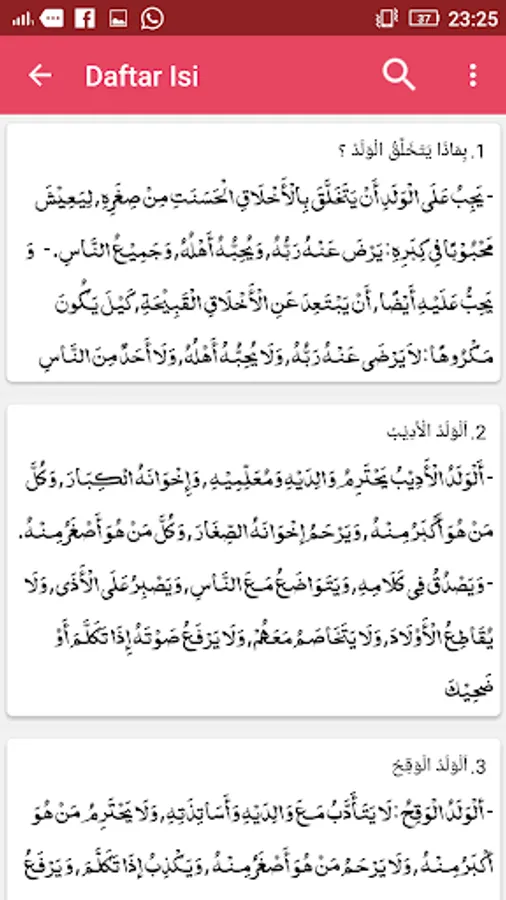 37 23:25
Daftar Isi
1. بِمَاذَا يَتَخَلَّقُ الْوَلَدُ ؟
-يَجِبُ عَلَى الْوَلَدِ أَنْ يَتَخَلَّقَ بِالْأَخْلَاقِ الْحَسَنَتِ مِنْ صِغَرِهِ, لِيَعِيْشَ
مَحْبُوْبًا فِي كِبَرِهِ: يَرْضَ عَنْهُ رَبُّهُ, وَيُحِبُّهُ أَهْلُهُ, وَجَمِيْعُ النَّاسِ. - وَ
يَجِبُ عَلَيْهِ أَيْضًا, أَنْ يَبْتَعِدَ عَنِ الْأَخْلَاقِ الْقَبِيْحَةِ, كَيْلَ يَكُوْنَ
مَكْرُوهًا: لاَ يَرْضَى عَنْهُ رَبُّهُ, وَلَا يُحِبُّهُ أَهْلُهُ, وَلَا أَحَدٌ مِنَ النَّاسِ
2. اَلْوَلَدُ الْأَدِيْبُ
-أَلْوَلَدُ الْأَدِيْبُ يَحْتَرِمُ وَالِدَيْهِ وَمُعَلِّمِيْهِ, وَإِخْوَانَهُ الْكِبَارَ, وَكُلَّ
مَنْ هُوَ أَكْبَرُ مِنْهُ, وَيَرْحَمُ إِخْوَانَهُ الصِّغَارَ, وَكُلَّ مَنْ هُوَ أَصْغَرُ مِنْهُ.
-وَيَصْدُقُ فِي كَلَامِهِ, وَيَتَوَاضَعُ مَعَ النَّاسِ, وَيَصْبِرُ عَلَى الْأَذَى, وَلَا
يُقَاطِعُ الْأَوْلَادَ, وَلَا يَتَخَاصَمُ مَعَهُمْ, وَلَا يَرْفَعُ صَوْتَهُ إِذَا تَكَلَّمَ أَوْ
ضَحِيْكَ
3. اَلْوَلَدُ الْوَقِحُ
-اَلْوَلَدُ الْوَقِحُ: لَا يَتَأَدَّبُ مَعَ وَالِدَيْهِ وَأَسَاتِذَتِهِ, وَلَا يَحْتَرِمُ مَنْ هُوَ
أَكْبَرُ مِنْهُ, وَلَا يَرْحَمُ مَنْ هُوَ أَصْغَرُ مِنْهُ, وَيَكْذِبُ إِذَا تَكَلَّمَ, وَيَرْفَعُ